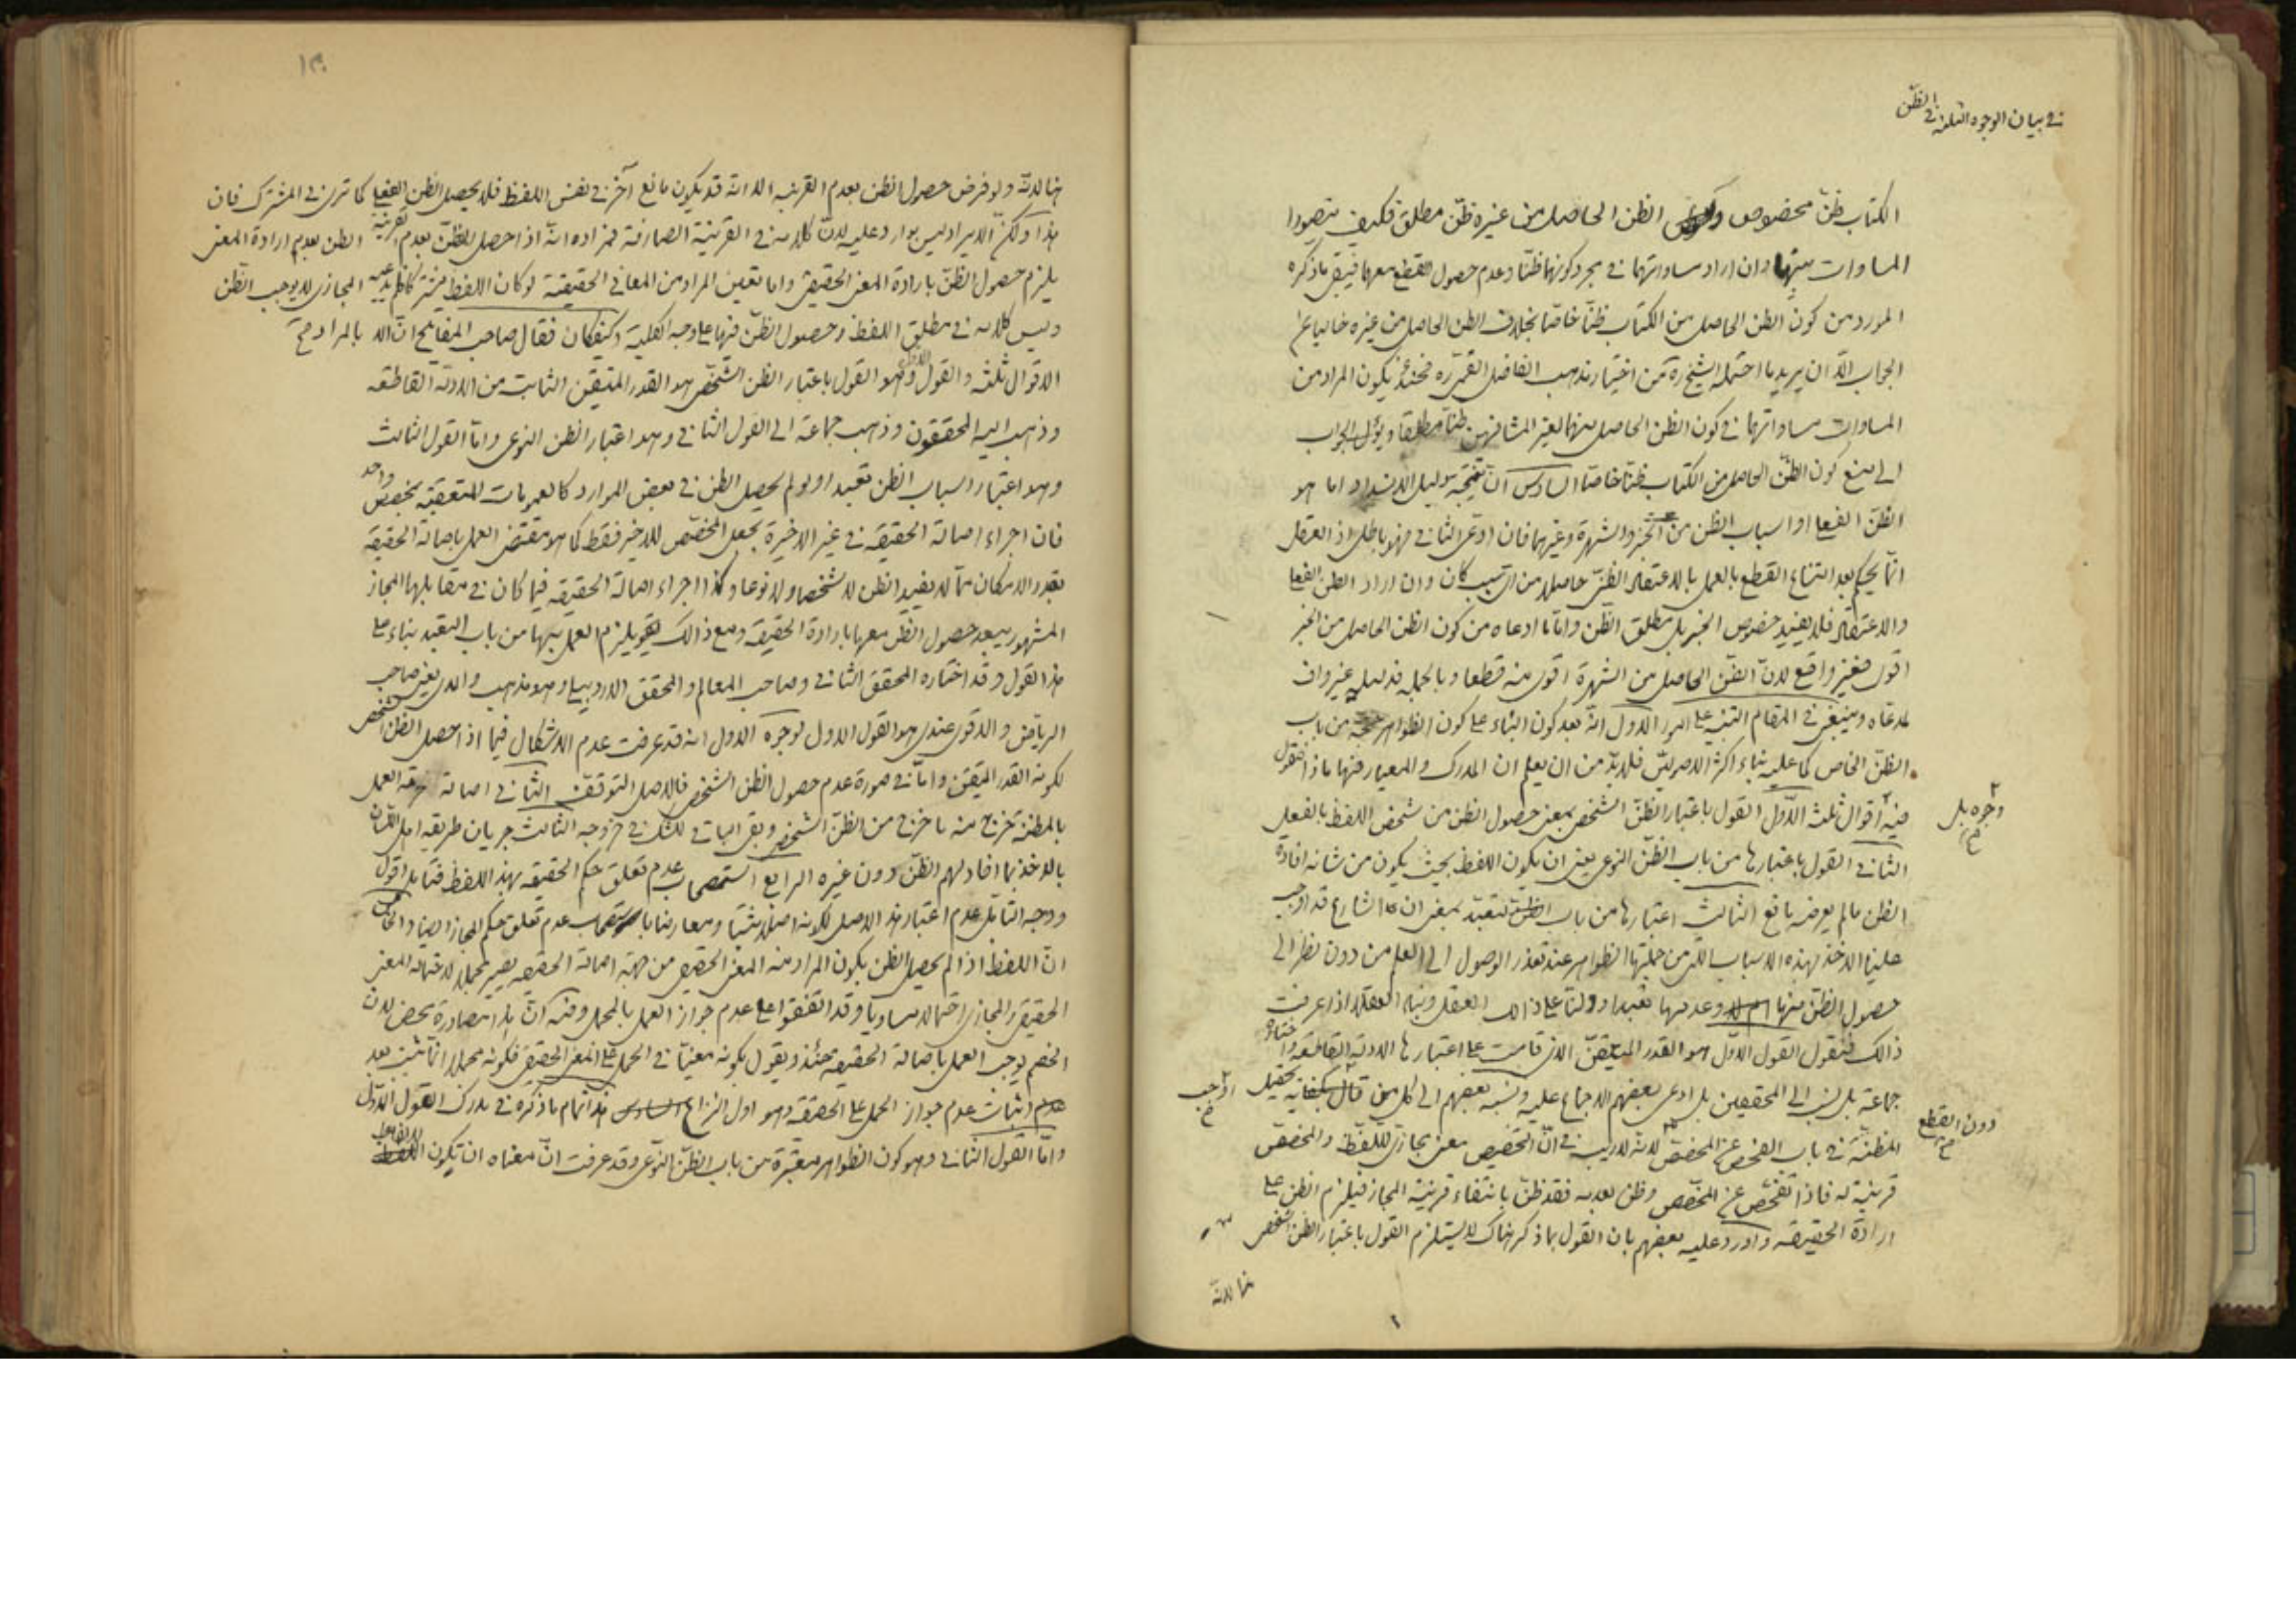 في بيان الوجوه الثلثة في الظن
الكتاب ظنّ مخصوص والظن الحاصل من غيره ظنّ مطلق فكيف يتصور
المساوات بينهما وان اراد مساواتهما في مجرد كونهما ظنّا وعدم حصول القطع معهما فيبقى ما ذكره
المورد من كون الظن الحاصل من الكتاب ظنّا خاصّا بخلاف الظن الحاصل من غيره خاليا عن
الجواب الّا ان يريد ما احتمله الشيخ ره من اختيار مذهب الفاضل القمّي ره فحينئذ يكون المراد من
المساوات مساواتهما في كون الظن الحاصل منهما لغير المشافهين ظنّا مطلقا ويؤل الجواب
الى منع كون الظنّ الحاصل من الكتاب ظنّا خاصّا السادس انّ نتيجة دليل الانسداد اما هو
الظنّ الفعلي او اسباب الظن من الخبر والشهرة وغيرهما فان ادّعى الثاني فهو باطل اذ العقل
انّما يحكم بعد امتناع القطع بالعمل بالاعتقاد الظنّي حاصلا من ايّ سبب كان وان اراد الظن الفعلي
والاعتقاد فلا يفيد خصوص الخبر بل مطلق الظن وامّا ما ادعاه من كون الظن الحاصل من الخبر
اقوى فغير واقع لانّ الظنّ الحاصل من الشهرة اقوى منه قطعا وبالجملة فدليله غير واف
لمدعاه وينبغي في المقام التنبيه على امور الاول انّه بعد كون البناء على كون الظواهر حجة من باب
الظنّ الخاص كما عليه بناء اكثر الاصوليّين فلا بدّ من ان يعلم ان المدرك والمعيار فيها ماذا فنقول
وجوه بل
فيه اقوال ثلث الاوّل القول باعتبار الظنّ الشخصي بمعنى حصول الظن من شخص اللفظ بالفعل
الثاني القول باعتبارها من باب الظنّ النوعي يعني ان يكون اللفظ بحيث يكون من شانه افادة
الظن ما لم يعرضه مانع الثالث اعتبارها من باب التعبّد بمعنى ان الشارع قد اوجب
علينا الاخذ بهذه الاسباب الّتي من جملتها الظواهر عند تعذر الوصول الى العلم من دون نظر الى
حصول الظنّ منها وعدمها تعبدا ودلّنا على ذالك العقل وبناء العقلا اذا عرفت
ذالك فنقول القول الاوّل هو القدر المتيقّن الذي قامت على اعتبارها الادلة القاطعة واختاره
جماعة بل نسب الى المحققين بل ادعى بعضهم الاجماع عليه ونسبه بعضهم الى كل من قال بكفاية تحصيل
دون القطع
المظنّة في باب الفحص عن المخصّص لانه لا ريب في انّ التخصيص معنى مجازيّ للّفظ والمخصّص
قرينة له فاذا تفحّص عن المخصّص وظن بعدمه فقد ظنّ بانتفاء قرينة المجاز فيلزم الظن على
ارادة الحقيقة واورد عليه بعضهم بان القول بما ذكر هناك لا يستلزم القول باعتبار الظن الشخصي
هنا لانّه
هنا لانّه ولو فرض حصول الظن بعدم القرينه الا انّه قد يكون مانع آخر في نفس اللفظ فلا يحصل الظن الفعلي كما ترى في المشترك فان
هذا ولكنّ الايراد ليس بوارد عليه لانّ كلامه في القرينة الصارفة فمراده انّه اذا حصل الظنّ بعدم القرينة الظن بعدم ارادة المعنى
المجازي
يلزم حصول الظنّ بارادة المعنى الحقيقي واما تعيين المراد من المعاني الحقيقية لو كان اللفظ مشتركا فلم يدّعيه لا يوجب الظنّ
وليس كلامه في مطلق اللفظ وحصول الظن فيها على وجه الكلية وكيفكان فقال صاحب المفاتيح انّ بالمراد
الاقوال ثلثه والقول الاول وهو القول باعتبار الظن الشخّصي هو القدر المتيقن الثابت من الادلّة القاطعه
وذهب اليه المحققون وذهب جماعة الى القول الثاني وهو اعتبار الظن النوعى وامّا القول الثالث
وهو اعتبار اسباب الظن تعبدا ولو لم يحصل الظن في بعض الموارد كالعمومات المتعقبة بمخصّص واحد
فان اجراء اصالة الحقيقة في غير الاخيرة بجعل المخصّص للاخير فقط كما هو مقتضى العمل باصالة الحقيقة
بقدر الامكان ممّا لا يفيد الظن لا شخصا ولا نوعا وكذا اجراء اصالة الحقيقه فيما كان في مقابلها المجاز
المشهور يبعد حصول الظن معها بارادة الحقيقة ومع ذالك يلزم العمل بهما من باب التعبد بناء على
هذا القول وقد اختاره المحقق الثاني وصاحب المعالم والمحقق الاردبيلي وهو مذهب والدي يعني صاحب
الرياض والاقوى عندي هو القول الاول لوجوه الاول انه قد عرفت عدم الاشكال فيما اذا حصل الظن الشخصي
لكونه القدر المتيقن وامّا في صورة عدم حصول الظن الشخصي فالاصل التوقّف الثاني اصالة حرمة العمل
بالمظنّة خرج منه ما خرج من الظنّ الشخصي وبقي الباقي للشك في خروجه الثالث جريان طريقه اهل اللّسان
بالاخذ بما افاد لهم الظنّ دون غيره الرابع استصحاب عدم تعلق حكم الحقيقه بهذا اللفظ فتامل اقول
ووجه التامّل عدم اعتبار هذا الاصل لكونه اصلا مثبتا ومعارضا باستصحاب عدم تعلق حكم المجاز ايضا والخامس
انّ اللفظ اذا لم يحصل الظن بكون المراد منه المعنى الحقيقي من جهة اصالة الحقيقه يصير مجملا لاحتماله المعنى
الحقيقي والمجازي احتمالا مساويا وقد اتّفقوا على عدم جواز العمل بالمجمل وفيه انّ هذا مصادرة محض لان
الخصم يوجب العمل باصالة الحقيقة حينئذ ويقول بكونه معيّنا في الحمل على المعنى الحقيقي فكونه مجملا انّما يثبت بعد
اثبات عدم جواز الحمل على الحقيقة وهو اول النزاع هذا تمام ما ذكره في مدرك القول الاوّل
وامّا القول الثاني وهو كون الظواهر معتبرة من باب الظنّ النوّعي وقد عرفت انّ معناه ان تكون الالفاظ